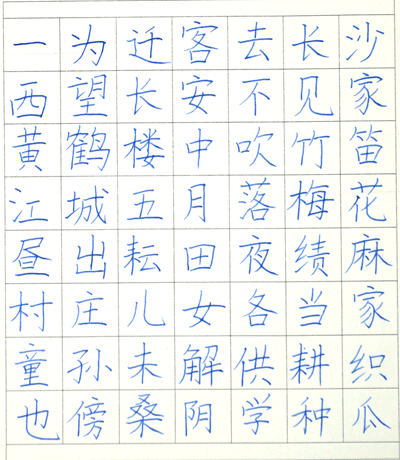 一为迁客去长沙
西望长安不见家
黄鹤楼中吹竹笛
江城五月落梅花
昼出耘田夜绩麻
村庄儿女各当家
童孙未解供耕织
也傍桑阴学种瓜